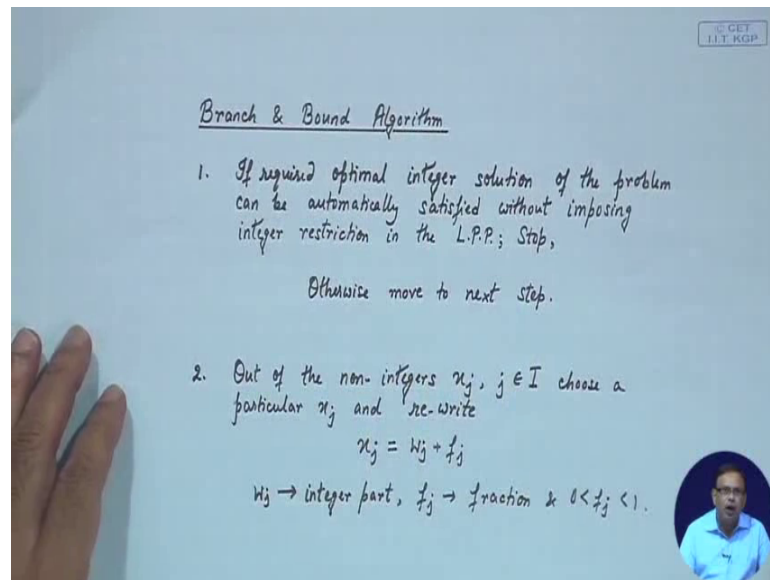 © CET
I.I.T. KGP
Branch & Bound Algorithm
1. If required optimal integer solution of the problem
can be automatically satisfied without imposing
integer restriction in the L.P.P.; Stop,
Otherwise move to next step.
2. Out of the non-integers xj, j ∈ I choose a
particular xj and re-write
xj = Wj + fj
Wj → integer part, fj → fraction & 0 < fj < 1.